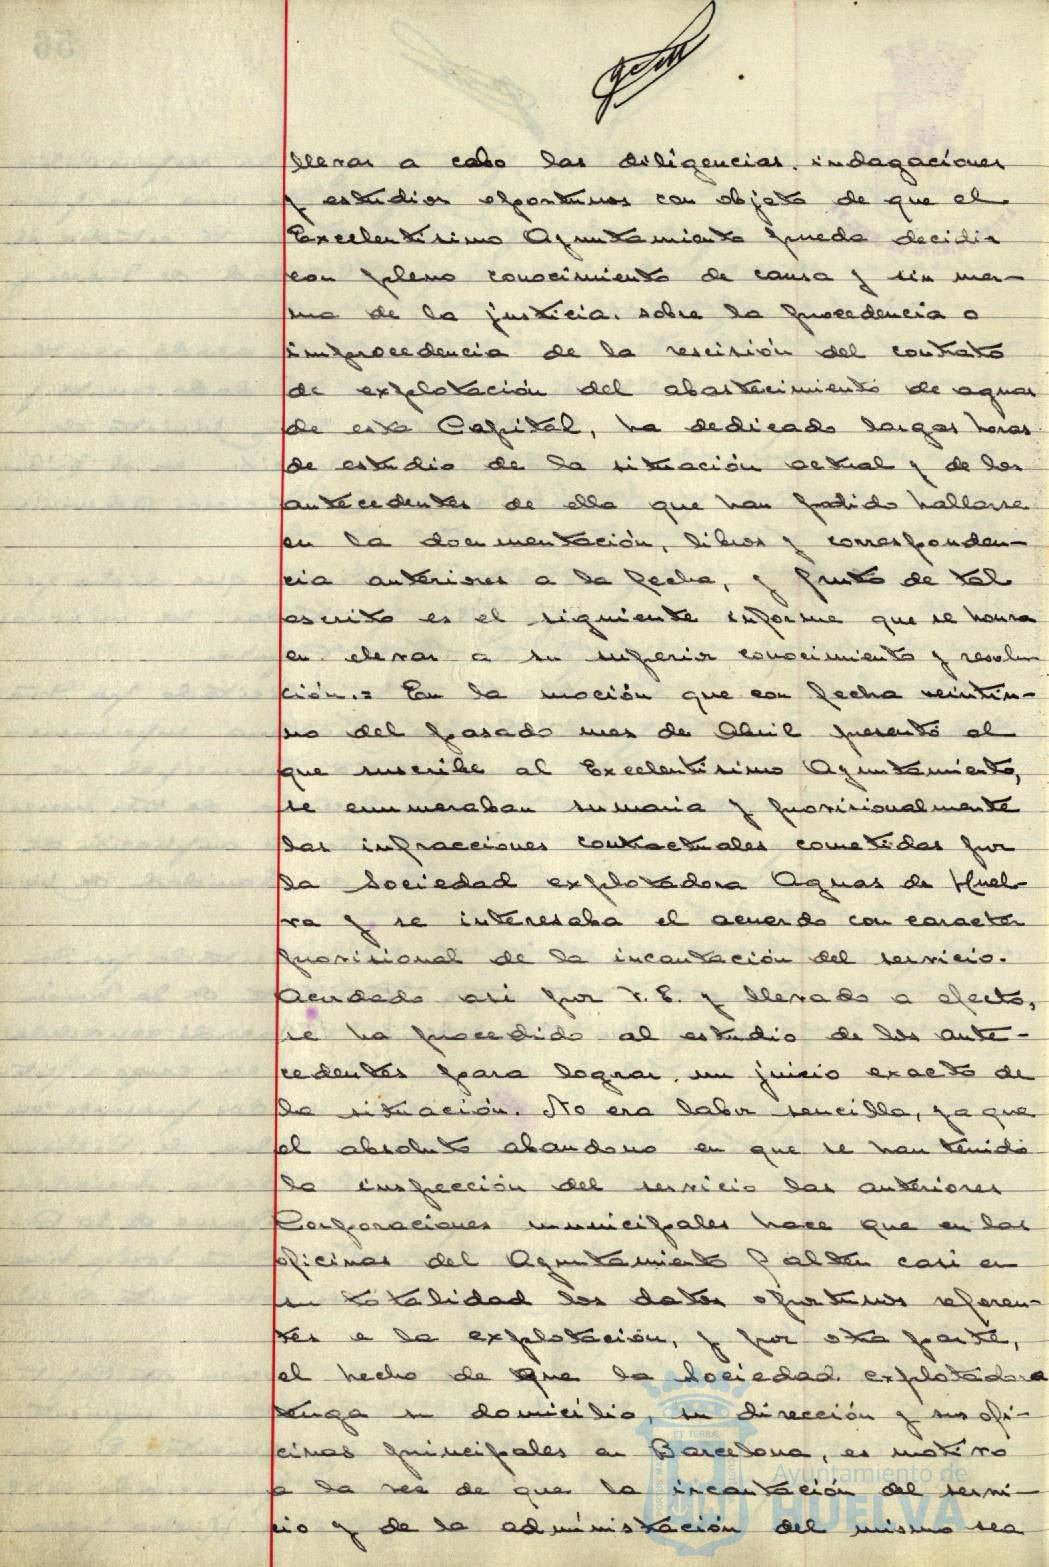 llevar a cabo las diligencias, indagaciones
y estudios oportunos con objeto de que el
Excelentísimo Ayuntamiento pueda decidir
con pleno conocimiento de causa y sin mer-
ma de la justicia, sobre la procedencia o
improcedencia de la rescisión del contrato
de explotación del abastecimiento de aguas
de esta Capital, ha dedicado largas horas
de estudio de la situación actual y de los
antecedentes de ella que han podido hallarse
en la documentación, libros y corresponden-
cia anteriores a la fecha, y fruto de tal
escrito es el siguiente informe que se honra
en elevar a su superior conocimiento y resolu
ción.= En la moción que con fecha veintiu-
no del pasado mes de Abril presentó el
que suscribe al Excelentísimo Ayuntamiento,
se enumeraban sumaria y provisionalmente
las infracciones contractuales cometidas por
la Sociedad explotadora Aguas de Huel-
va y se interesaba el acuerdo con caracter
provisional de la incautación del servicio.
Acordado asi por V. E. y llevado a efecto,
se ha procedido al estudio de los ante-
cedentes para lograr un juicio exacto de
la situación. No era labor sencilla, ya que
el absoluto abandono en que se han tenido
la inspección del servicio las anteriores
Corporaciones municipales hace que en las
oficinas del Ayuntamiento falten casi en
su totalidad los datos oportunos referen-
tes a la explotación, y por otra parte,
el hecho de que la Sociedad explotadora
tenga su domicilio, su dirección y sus ofi-
cinas principales en Barcelona, es motivo
a la vez de que la incautación del servi-
cio y de la administración del mismo sea
Ayuntamiento de
HUELVA